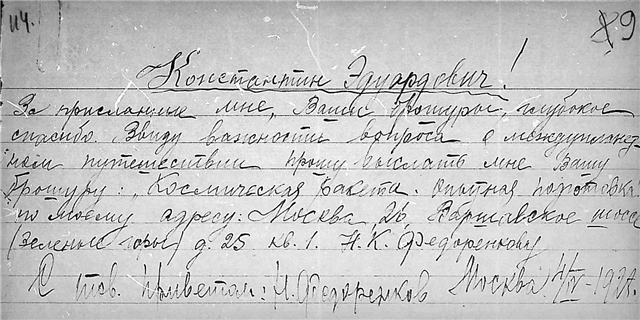 114.
89
Константин Эдуардович!
За присланные мне, Вами брошюры, глубокое
спасибо. Ввиду важности вопроса о междуплане-
ном путешествии прошу выслать мне Вашу
брошуру: „Космическая ракета. Опытная подготовка
по моему адресу: Москва 26, Варшавское шоссе
(Зеленые горы) д. 25 кв. 1. Н. К. Федоренкову
С тов. приветом: Н. Федоренков Москва 4/IV-192